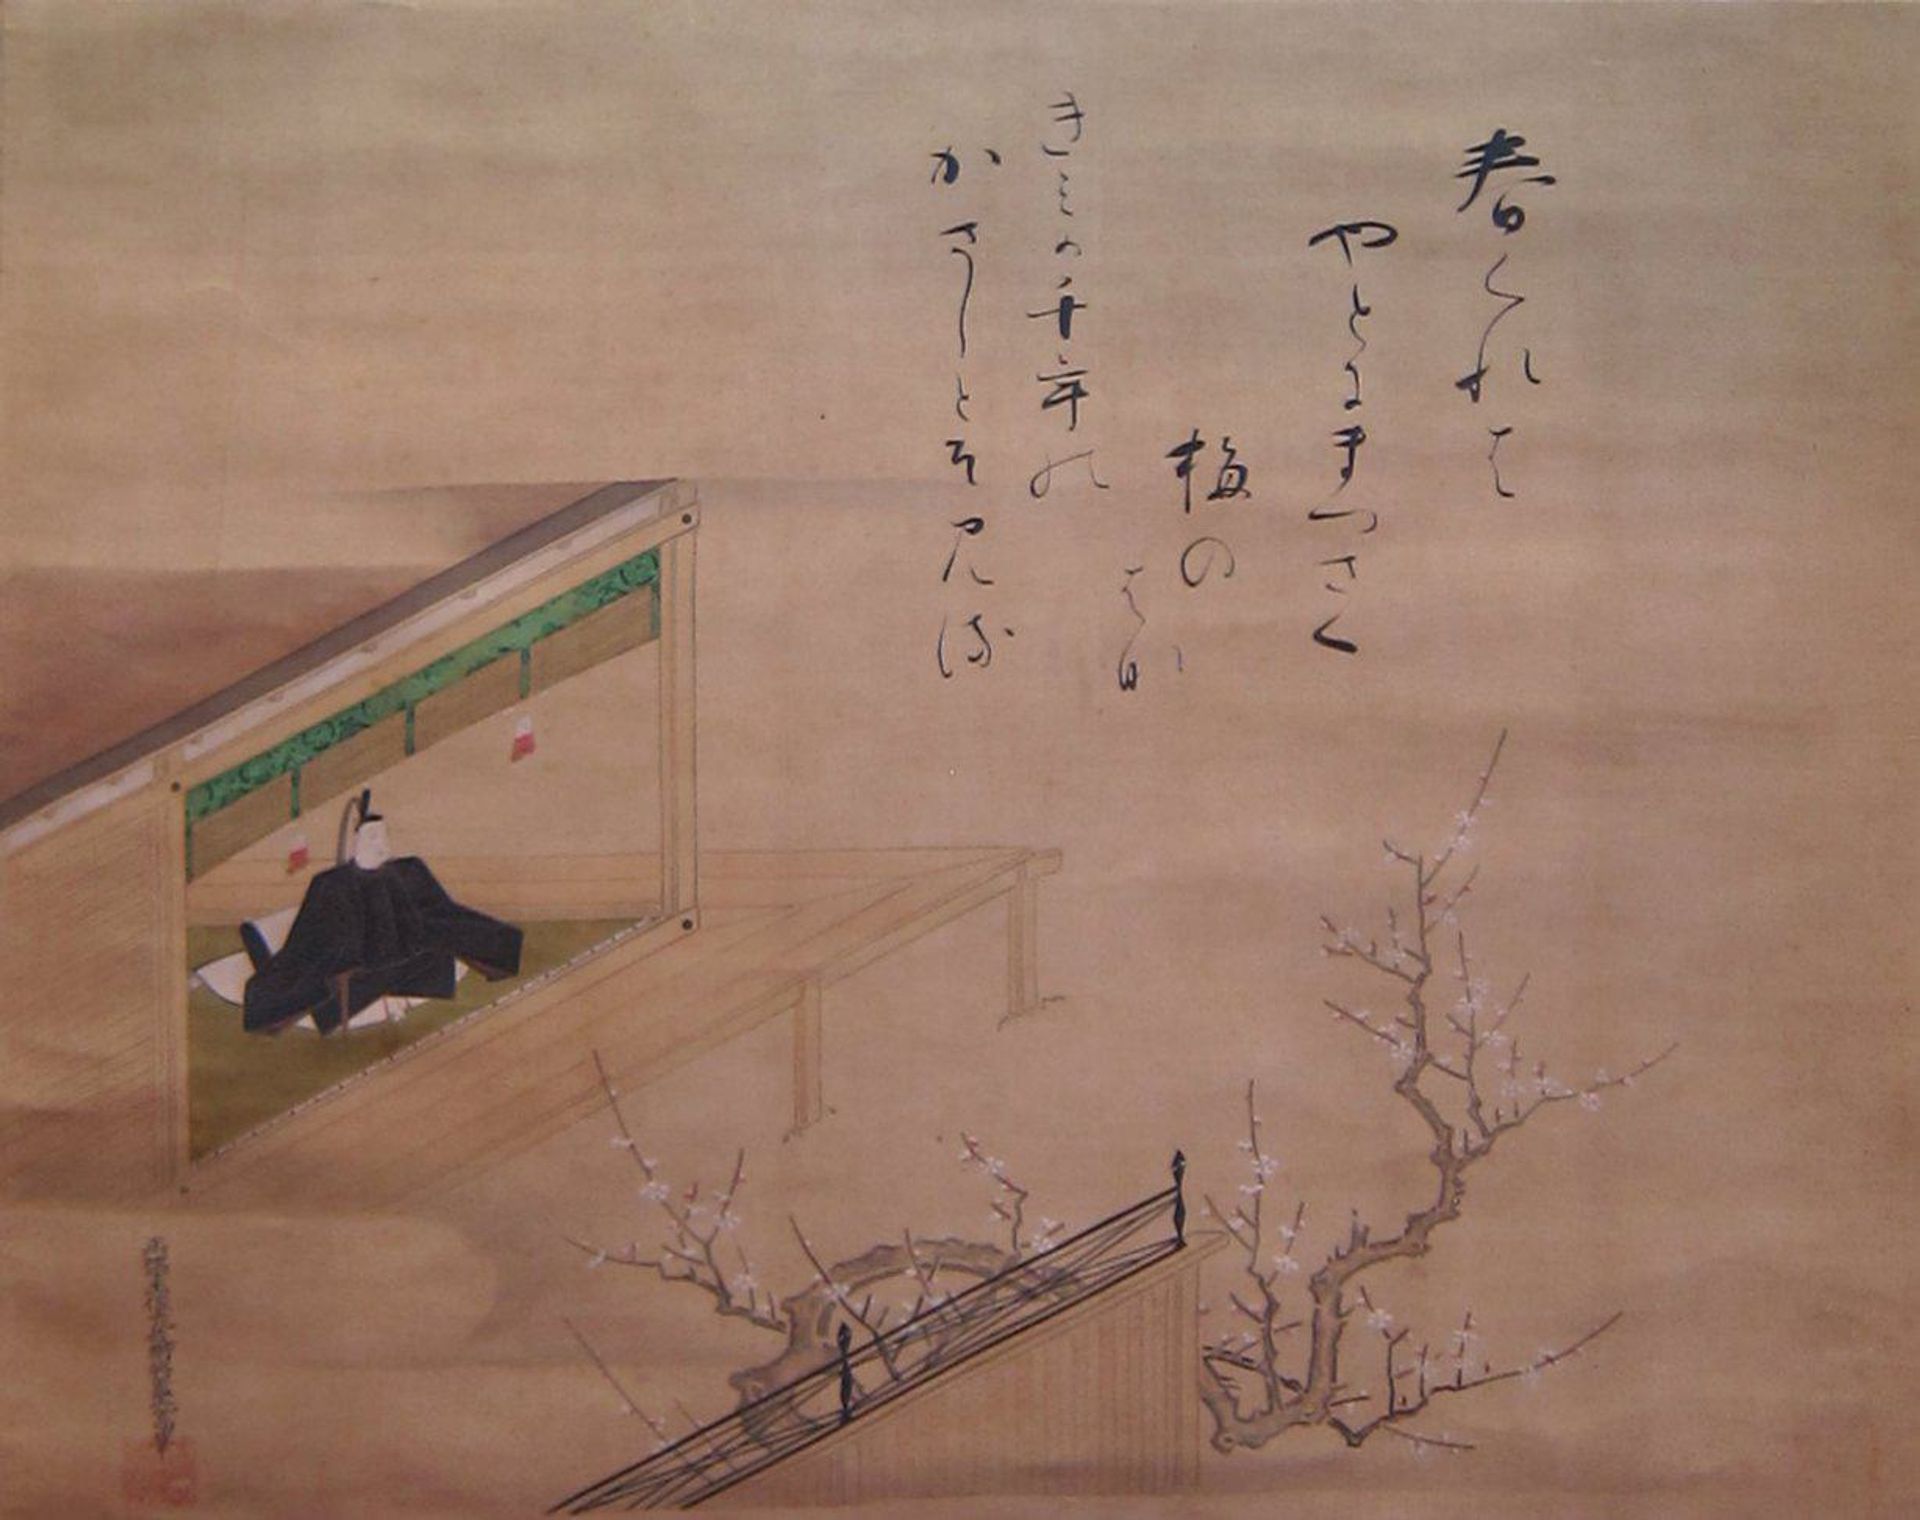 春くれは
やとにまつさく
梅の
はな
きみか千年の
かさしとそ見る